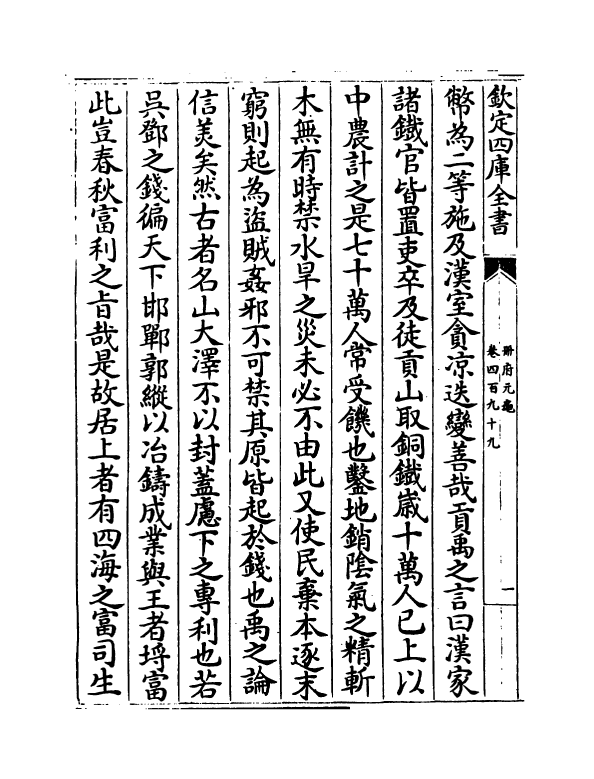 欽定四庫全書
冊府元龜
卷四百九十九
一
幣為二等施及漢室貪凉迭變善哉貢禹之言曰漢家
諸鐵官皆置吏卒及徒貢山取銅鐵歲十萬人已上以
中農計之是七十萬人常受饑也鑿地銷隂氣之精斬
木無有時禁水旱之災未必不由此又使民棄本逐末
窮則起為盜賊姦邪不可禁其原皆起於錢也禹之論
信美矣然古者名山大澤不以封蓋慮下之專利也若
呉鄧之錢徧天下邯鄲郭縱以冶鑄成業與王者埓富
此豈春秋富利之㫖哉是故居上者有四海之富司生